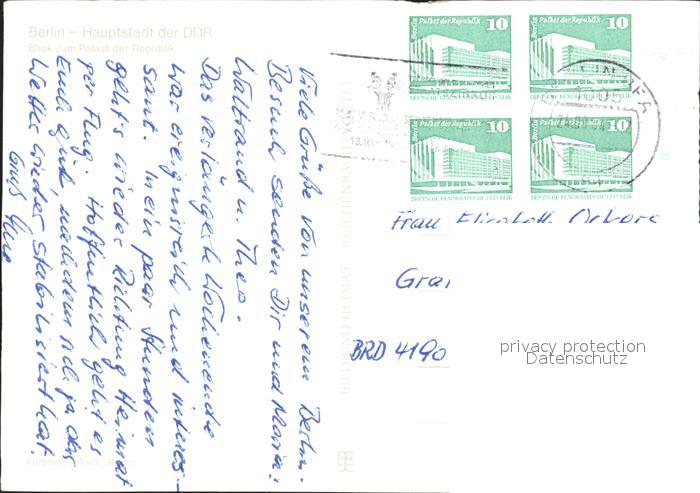 Berlin – Hauptstadt der DDR
Blick zum Palast der Republik
Viele Grüße von unserem Berlin-
Besuch senden Dir und Maria:
Waltraud u. Theo.
Das verlängerte Wochenende
war ereignisreich und interes-
sant. In ein paar Stunden
geht's wieder Richtung Heimat
per Flug. Hoffentlich geht es
Euch gut, nachdem sich ja das
Wetter wieder stabilisiert hat.
Gruß
Berlin Palast der Republik 10
DEUTSCHE DEMOKRATISCHE REPUBLIK
Berlin Palast der Republik 10
DEUTSCHE DEMOKRATISCHE REPUBLIK
Berlin Palast der Republik 10
DEUTSCHE DEMOKRATISCHE REPUBLIK
Berlin Palast der Republik 10
DEUTSCHE DEMOKRATISCHE REPUBLIK
13.10.
BILD UND HEIMAT REICHENBACH
Frau Elisabeth
BRD 4190
privacy protection
Datenschutz